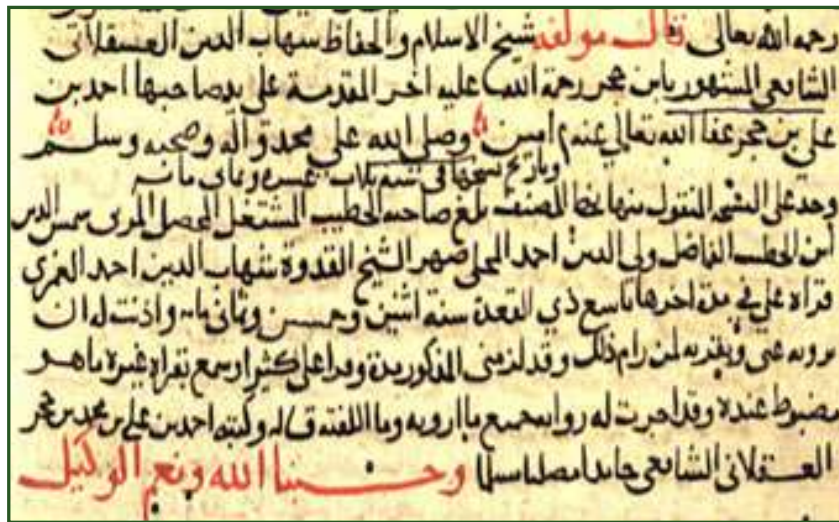 رحمه الله تعالى قال مولفه شيخ الاسلام والحفاظ شهاب الدين العسقلاني
الشافعي المشهور بابن حجر رحمة الله عليه اخر المقدمة على يد صاحبها احمد بن
على بن حجر عفا الله تعالى عنهم امين وصلى الله على محمد وآله وصحبه وسلم
وتاريخ نسخها في سنة ثلاث عشرة وثمان مائة
وجد على النسخة المنقول منها بخط المصنف بلغ صاحبه الخطيب المشتغل المحصل المرى شمس الدين
ابن الخطيب الفاضل ولي الدين احمد المحلى صهر الشيخ القدوة شهاب الدين احمد الغمرى
قراة علي في مدة اخرها تاسع ذي القعدة سنة اثنين وخمسين وثماني مايه واذنت له ان
يرويه عني ويقريه لمن رام ذلك وقد لزمنى المذكور مدة وقرا على كثيرا وسمع بقراة غيره ما هو
مضبوط عنده وقد اجزت له رواية جميع ما ارويه وما الفته قاله وكتبه احمد بن على بن محمد بن حجر
العسقلانى الشافعى حامدا مصليا مسلما وحسبنا الله ونعم الوكيل